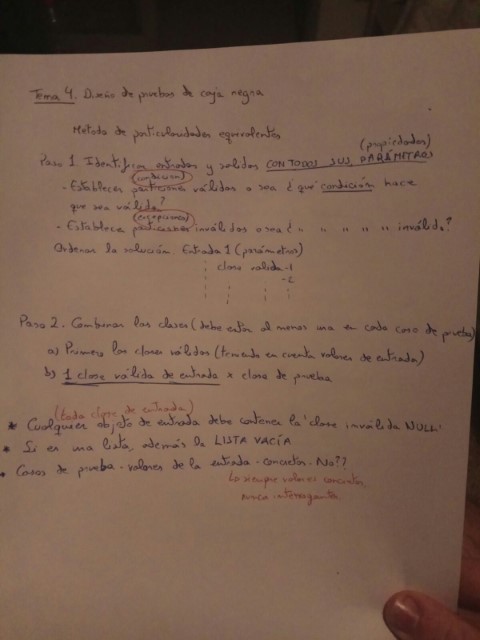 Tema 4. Diseño de pruebas de caja negra
Metodo de particularidades equivalentes
(propiedades)
Paso 1 Identificar entradas y salidas CON TODOS SUS PARÁMETROS
(condiciones)
- Establecer particiones válidas o sea ¿ qué condición hace
que sea válida?
(excepciones)
- Establece particiones inválidas o sea ¿ " " " " " inválida?
Ordenar la solución. Entrada 1 (parámetro)
clase valida -1
-2
Paso 2. Combinar las clases (debe estar al menos una en cada caso de pruebas)
a) Primero las clases válidas (teniendo en cuenta valores de entrada)
b) 1 clase válida de entrada x clase de prueba
(toda clase de entrada)
* Cualquier objeto de entrada debe contener la 'clase inválida NULL'
* Si es una lista, además la LISTA VACÍA
* Casos de prueba - valores de la entrada - concretos - No??
Lo siempre valores concretos,
nunca interrogantes.